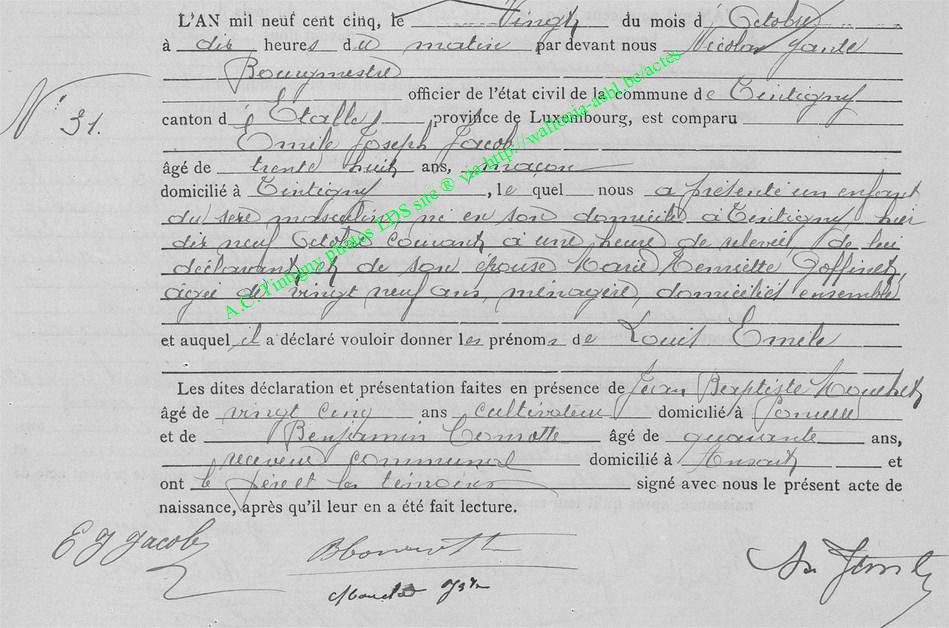 L'AN mil neuf cent cinq, le Vingt du mois d'Octobre
à dix heures du matin par devant nous Nicolas
Bourgmestre
officier de l'état civil de la commune de Tintigny
N° 31.
canton d'Étalle, province de Luxembourg, est comparu
Emile Joseph Jacob
âgé de trente huit ans, maçon
domicilié à Tintigny, le quel nous a présenté un enfant
du sexe masculin, né en son domicile à Tintigny hier
dix neuf Octobre courant à une heure de relevée de lui
déclarant et de son épouse Marie Henriette Goffinet,
âgée de vingt neuf ans, ménagère, domiciliés ensemble
et auquel il a déclaré vouloir donner les prénoms de Louis Emile
Les dites déclaration et présentation faites en présence de Jean Baptiste Mouchet
âgé de vingt cinq ans cultivateur domicilié à
et de Benjamin âgé de quarante ans,
receveur communal domicilié à Ansart et
ont le père et les témoins signé avec nous le présent acte de
naissance, après qu'il leur en a été fait lecture.
E J Jacob
A.C. Tintigny photos LDS site ® via http://wallonia-asbl.be/actes